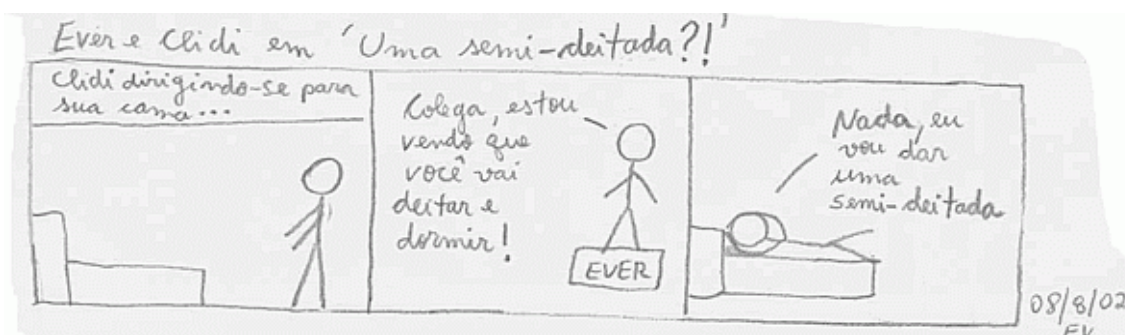 Ever e Clidi em 'Uma semi-deitada?!'
Clidi dirigindo-se para
sua cama...
Colega, estou
vendo que
você vai
deitar e
dormir!
EVER
Nada, eu
vou dar
uma
semi-deitada
08/8/02
EV